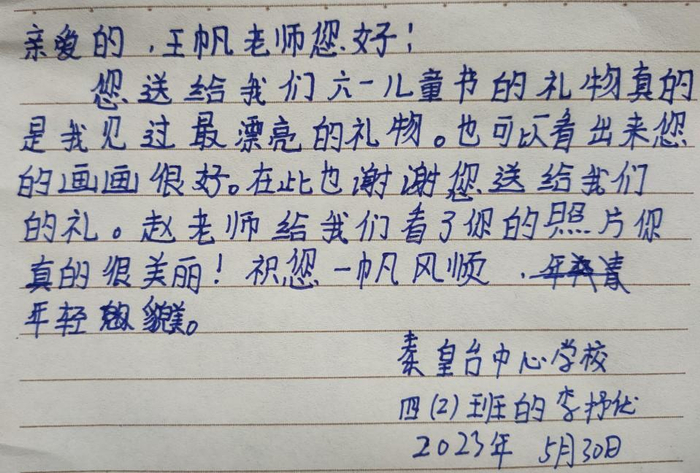 亲爱的,王帆老师您好!
您送给我们六一儿童书的礼物真的
是我见过最漂亮的礼物。也可以看出来您
的画画很好。在此也谢谢您送给我们
的礼。赵老师给我们看了你的照片你
真的很美丽!祝您一帆风顺、
年轻貌美。
秦皇台中心学校
四(2)班的李抒优
2023年 5月30日